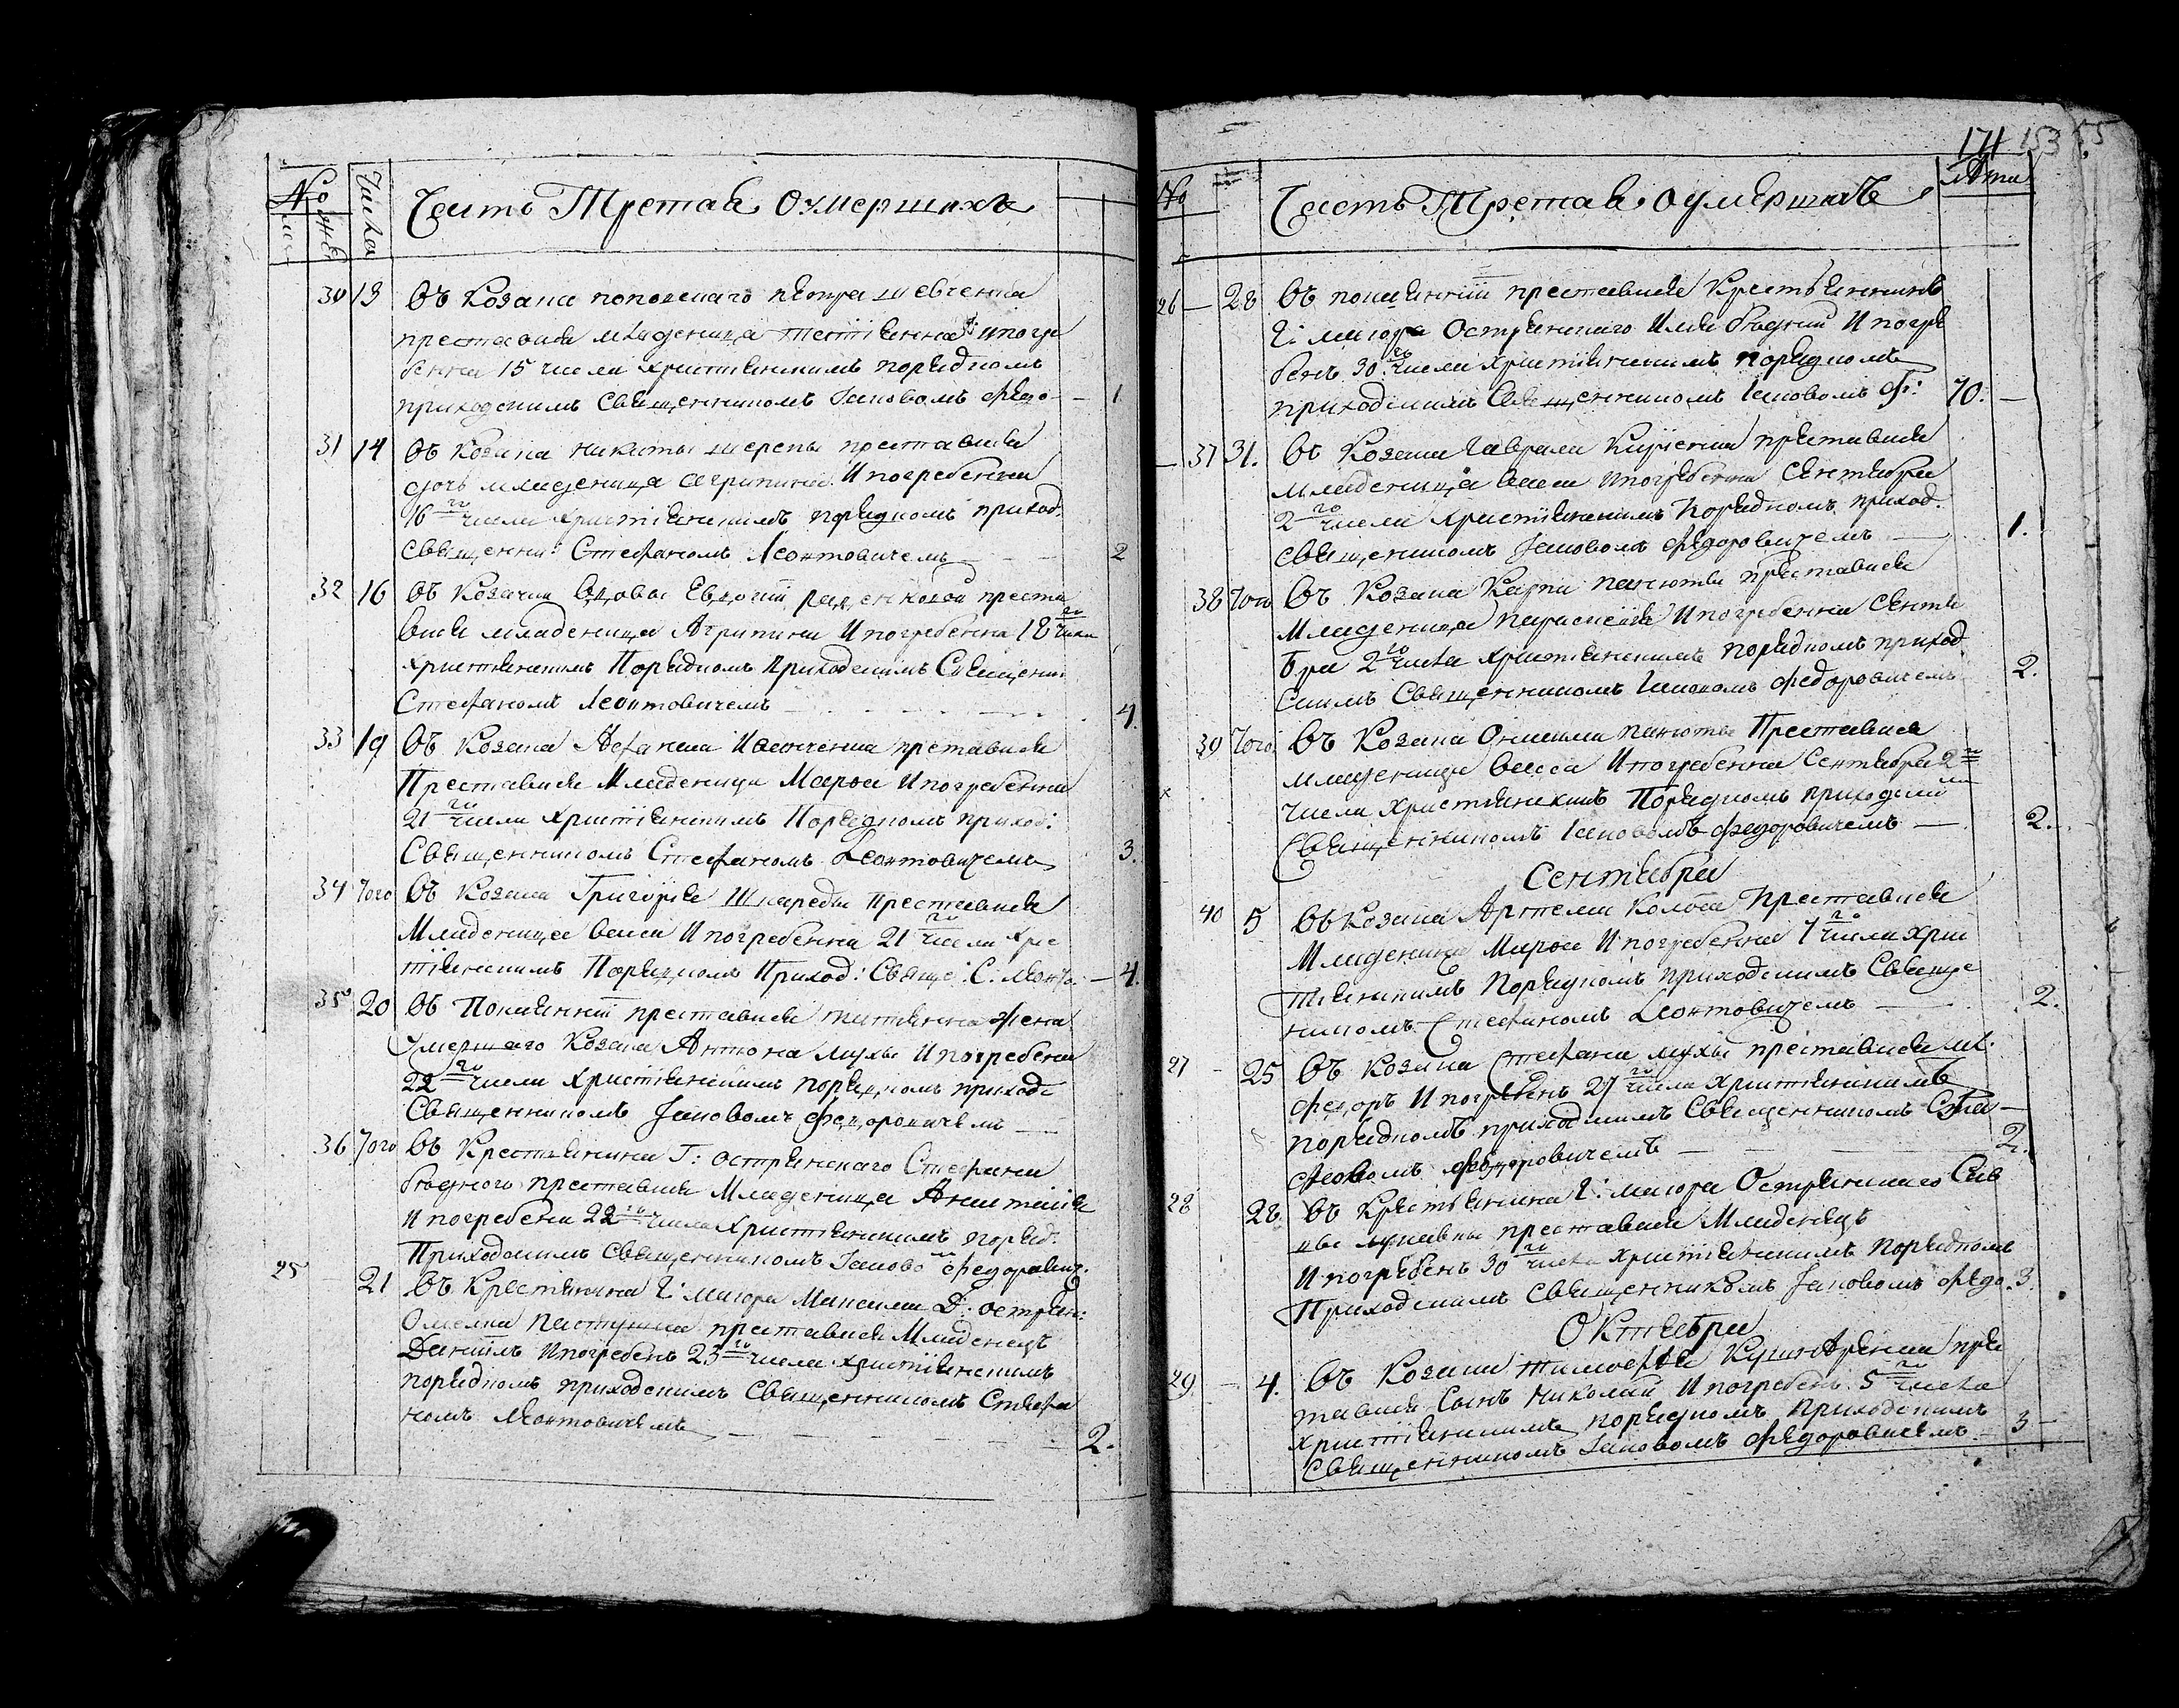 №
Числа
Часть Третая Оумершихъ
30 13 Въ Козака Петра Шевченка
преставися младеница и погре
бенна 15 числа християнскимъ порядкомъ
приходскимъ Священникомъ Іаковомъ Федо- — 1
31 14 Въ Козака Никиты преставися
дочь младеница Агрипина и погребенна
16 го числа християнскимъ порядкомъ приход:
Священни: Стефаномъ Леонтовичемъ — 2
32 16 Въ Козачки вдовы Евдокіи преста
вися младеница Агрипина и погребенна 18 го числа
християнскимъ Порядкомъ Приходскимъ Священни:
Стефаномъ Леонтовичемъ 4.
33 19 Въ Козака Иванченка преставися
Преставися Младеница Марѳа и погребенна
21 го числа християнскимъ Порядкомъ приход:
Священникомъ Стефаномъ Леонтовичемъ 3.
34 Того Въ Козака Григорія Шкареды Преставися
Младеница Васса и погребенна 21 го числа хрис
тіянскимъ Порядкомъ Приход: Свяще: С: Леонто: — 4.
35 20 Въ Покаянніи преставися татіянна жена
Умершаго Козака Антона Мухы и погребена
22 го числа християнскимъ порядкомъ приходс
Священникомъ Іаковомъ Федоровичемъ —
36 Того Въ Крестянина Г: Острянскаго Стефана
Бѣдного преставися Младеница Анастасія
и погребена 22 го числа християнскимъ поряд:
Приходскимъ Священникомъ Іаково м Федорович:
25 21 Въ Крестянина Г: маиора Максима Д: Острян:
Омелка Пастушка преставися Младенецъ
Даніилъ и погребенъ 23 го числа християнскимъ
порядкомъ приходскимъ Священникомъ Стефа
номъ Леонтовичемъ — 2.
171 153
№
Лѣта
Часть Третая Оумершихъ
26 — 28 Въ покаянніи преставися Крестьянинъ
Г: маиора Острянскаго Илія Бѣдний и погре
бенъ 30 го числа християнскимъ порядкомъ
приходскимъ Священникомъ Іаковомъ Ф: 70. —
— 37 31. Въ Козака Гаврила преставися
младеница Васса и погребенна Сентября
2 го числа християнскимъ порядкомъ приход.
Священникомъ Іаковомъ Федоровичемъ — 1.
38 Того Въ Козака Карпа Панюты преставися
Младеница Параскевія и погребенна Сентя
бра 2 го числа християнскимъ порядкомъ приход
скимъ Священникомъ Іаковомъ Федоровичемъ 2.
39 Того Въ Козака Панюты Преставися
младеница Васса и погребенна Сентября 2 го
числа християнскимъ Порядкомъ приходски м
Священникомъ Іаковомъ Федоровичемъ — 2.
Сентября
40 5 Въ Козака Артема Преставися
Младеница Марѳа и погребенна 7 го числа хрис
тіянскимъ Порядкомъ приходскимъ Свяще
никомъ Стефаномъ Леонтовичемъ — 2.
27 — 25 Въ Козака Стефана Мухы преставися мл:
Федоръ и погребенъ 27 го числа християнскимъ
порядкомъ приходскимъ Священникомъ
Федоровичемъ — 2.
28 28 Въ Крестьянина Г: маиора Острянскаго
преставися Младенецъ
и погребенъ 30 го числа християнскимъ порядкомъ
Приходскимъ Священникомъ Іаковомъ Федо. 3.
Октября
29 — 4. Въ Козака Тимофея пре
тавися Сынъ Николай и погребенъ 5 го числа
християнскимъ порядкомъ приходскимъ
Священникомъ Іаковомъ Федоровичемъ 3 —